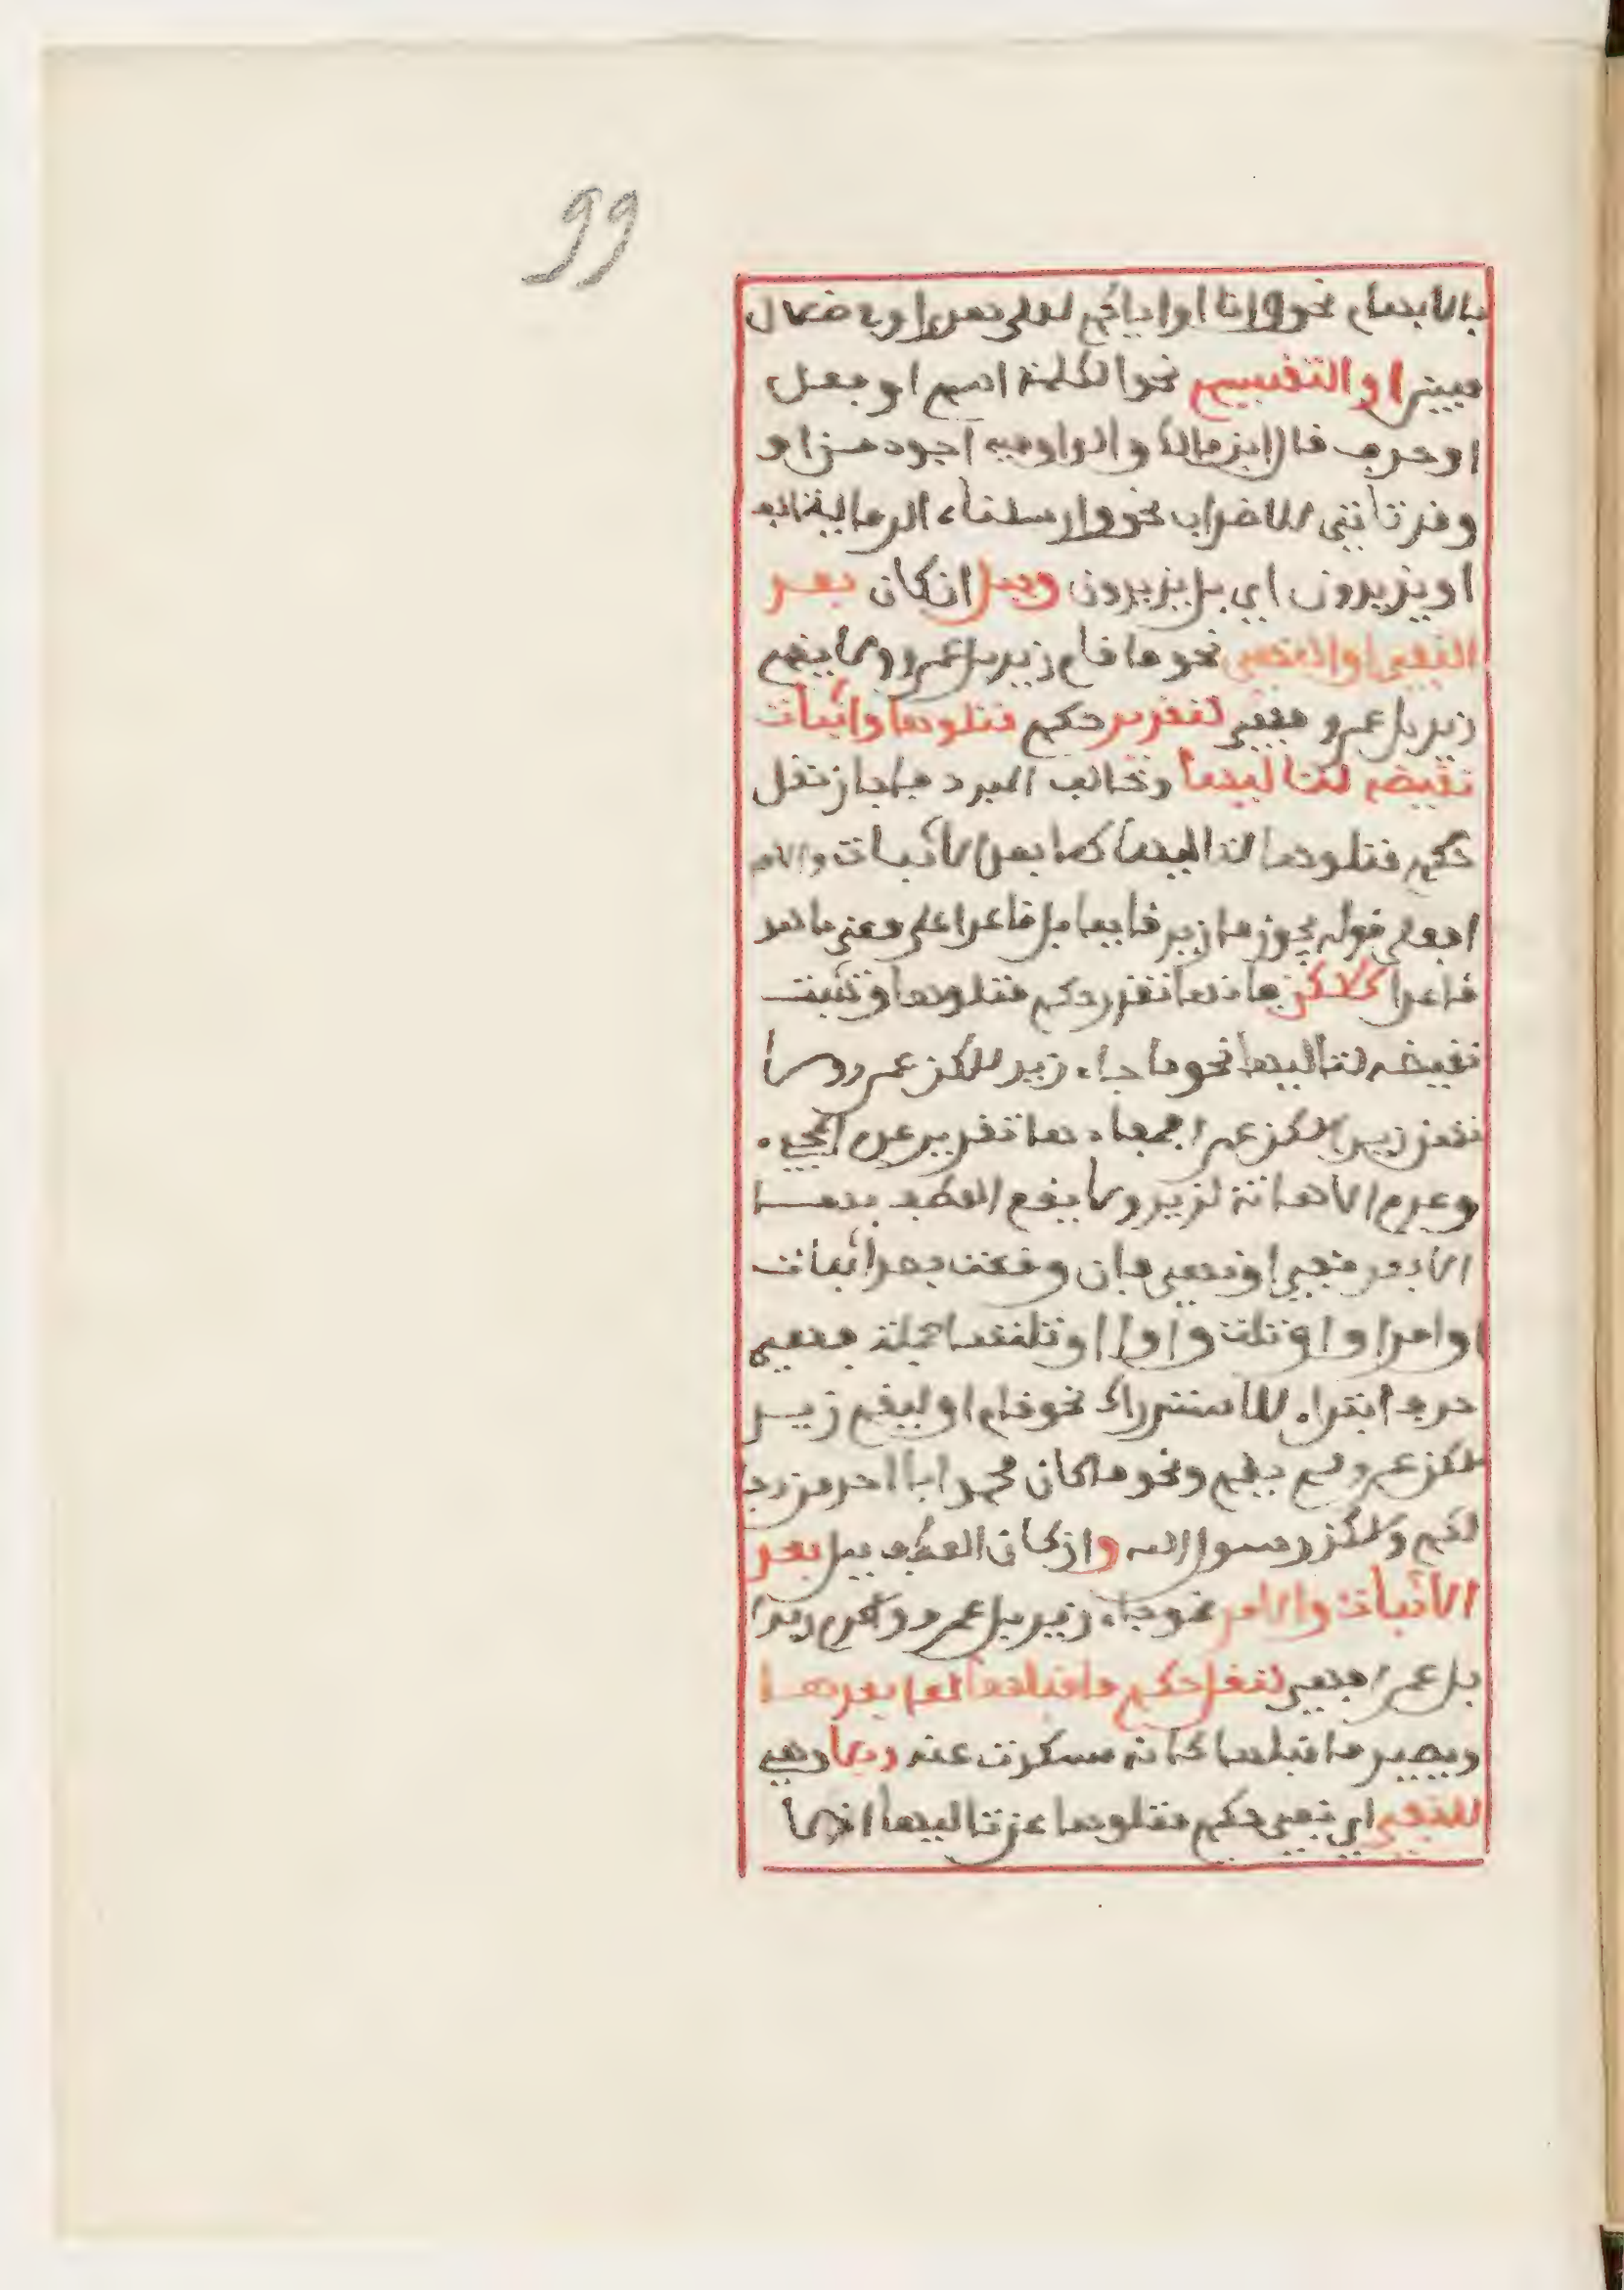 99
بالابهام نحو وانا او اياكم لعلى هدى او في ضلال
مبين او التقسيم نحو الكلمة اسم او فعل
او حرف قال ابن مالك والواو فيه اجود من او
وقد تاتي للاضراب نحو وارسلناه الى مائة الف
او يزيدون اي بل يزيدون وبل ان كان بعد
النفي او النهي نحو ما قام زيد بل عمرو ولا يقم
زيد بل عمرو فهي لتقرير حكم متلوها واثبات
نقيضه لتاليها وخالف المبرد فاجاز نقل
حكم متلوها لتاليها كما بعد الاثبات والامر
فعلى قوله يجوز ما زيد قايما بل قاعدا على معنى ما هو
قاعدا كلاكن فانها تقرر حكم متلوها وتثبت
نقيضه لتاليها نحو ما جاء زيد لاكن عمرو ولا
تهن زيدا لاكن عمرا ففيهما تقرير عدم المجيء
وعدم الاهانة لزيد ولا يقع العطف بها
الا بعد نفي او نهي فان وقعت بعد اثبات
او امر او تلت واوا او تلتها جملة فهي
حرف ابتداء للاستدراك نحو قام او ليقم زيد
لاكن عمرو لم يقم ونحو ما كان محمد ابا احد من رجا
لكم ولاكن رسول الله وان كان العطف ببل بعد
الاثبات والامر نحو جاء زيد بل عمرو واكرم زيدا
بل عمرا فهي لنقل حكم ما قبلها لما بعدها
ويصير ما قبلها كانه مسكوت عنه ولا وهي
للنفي اي نفي حكم متلوها عن تاليها اذ لا